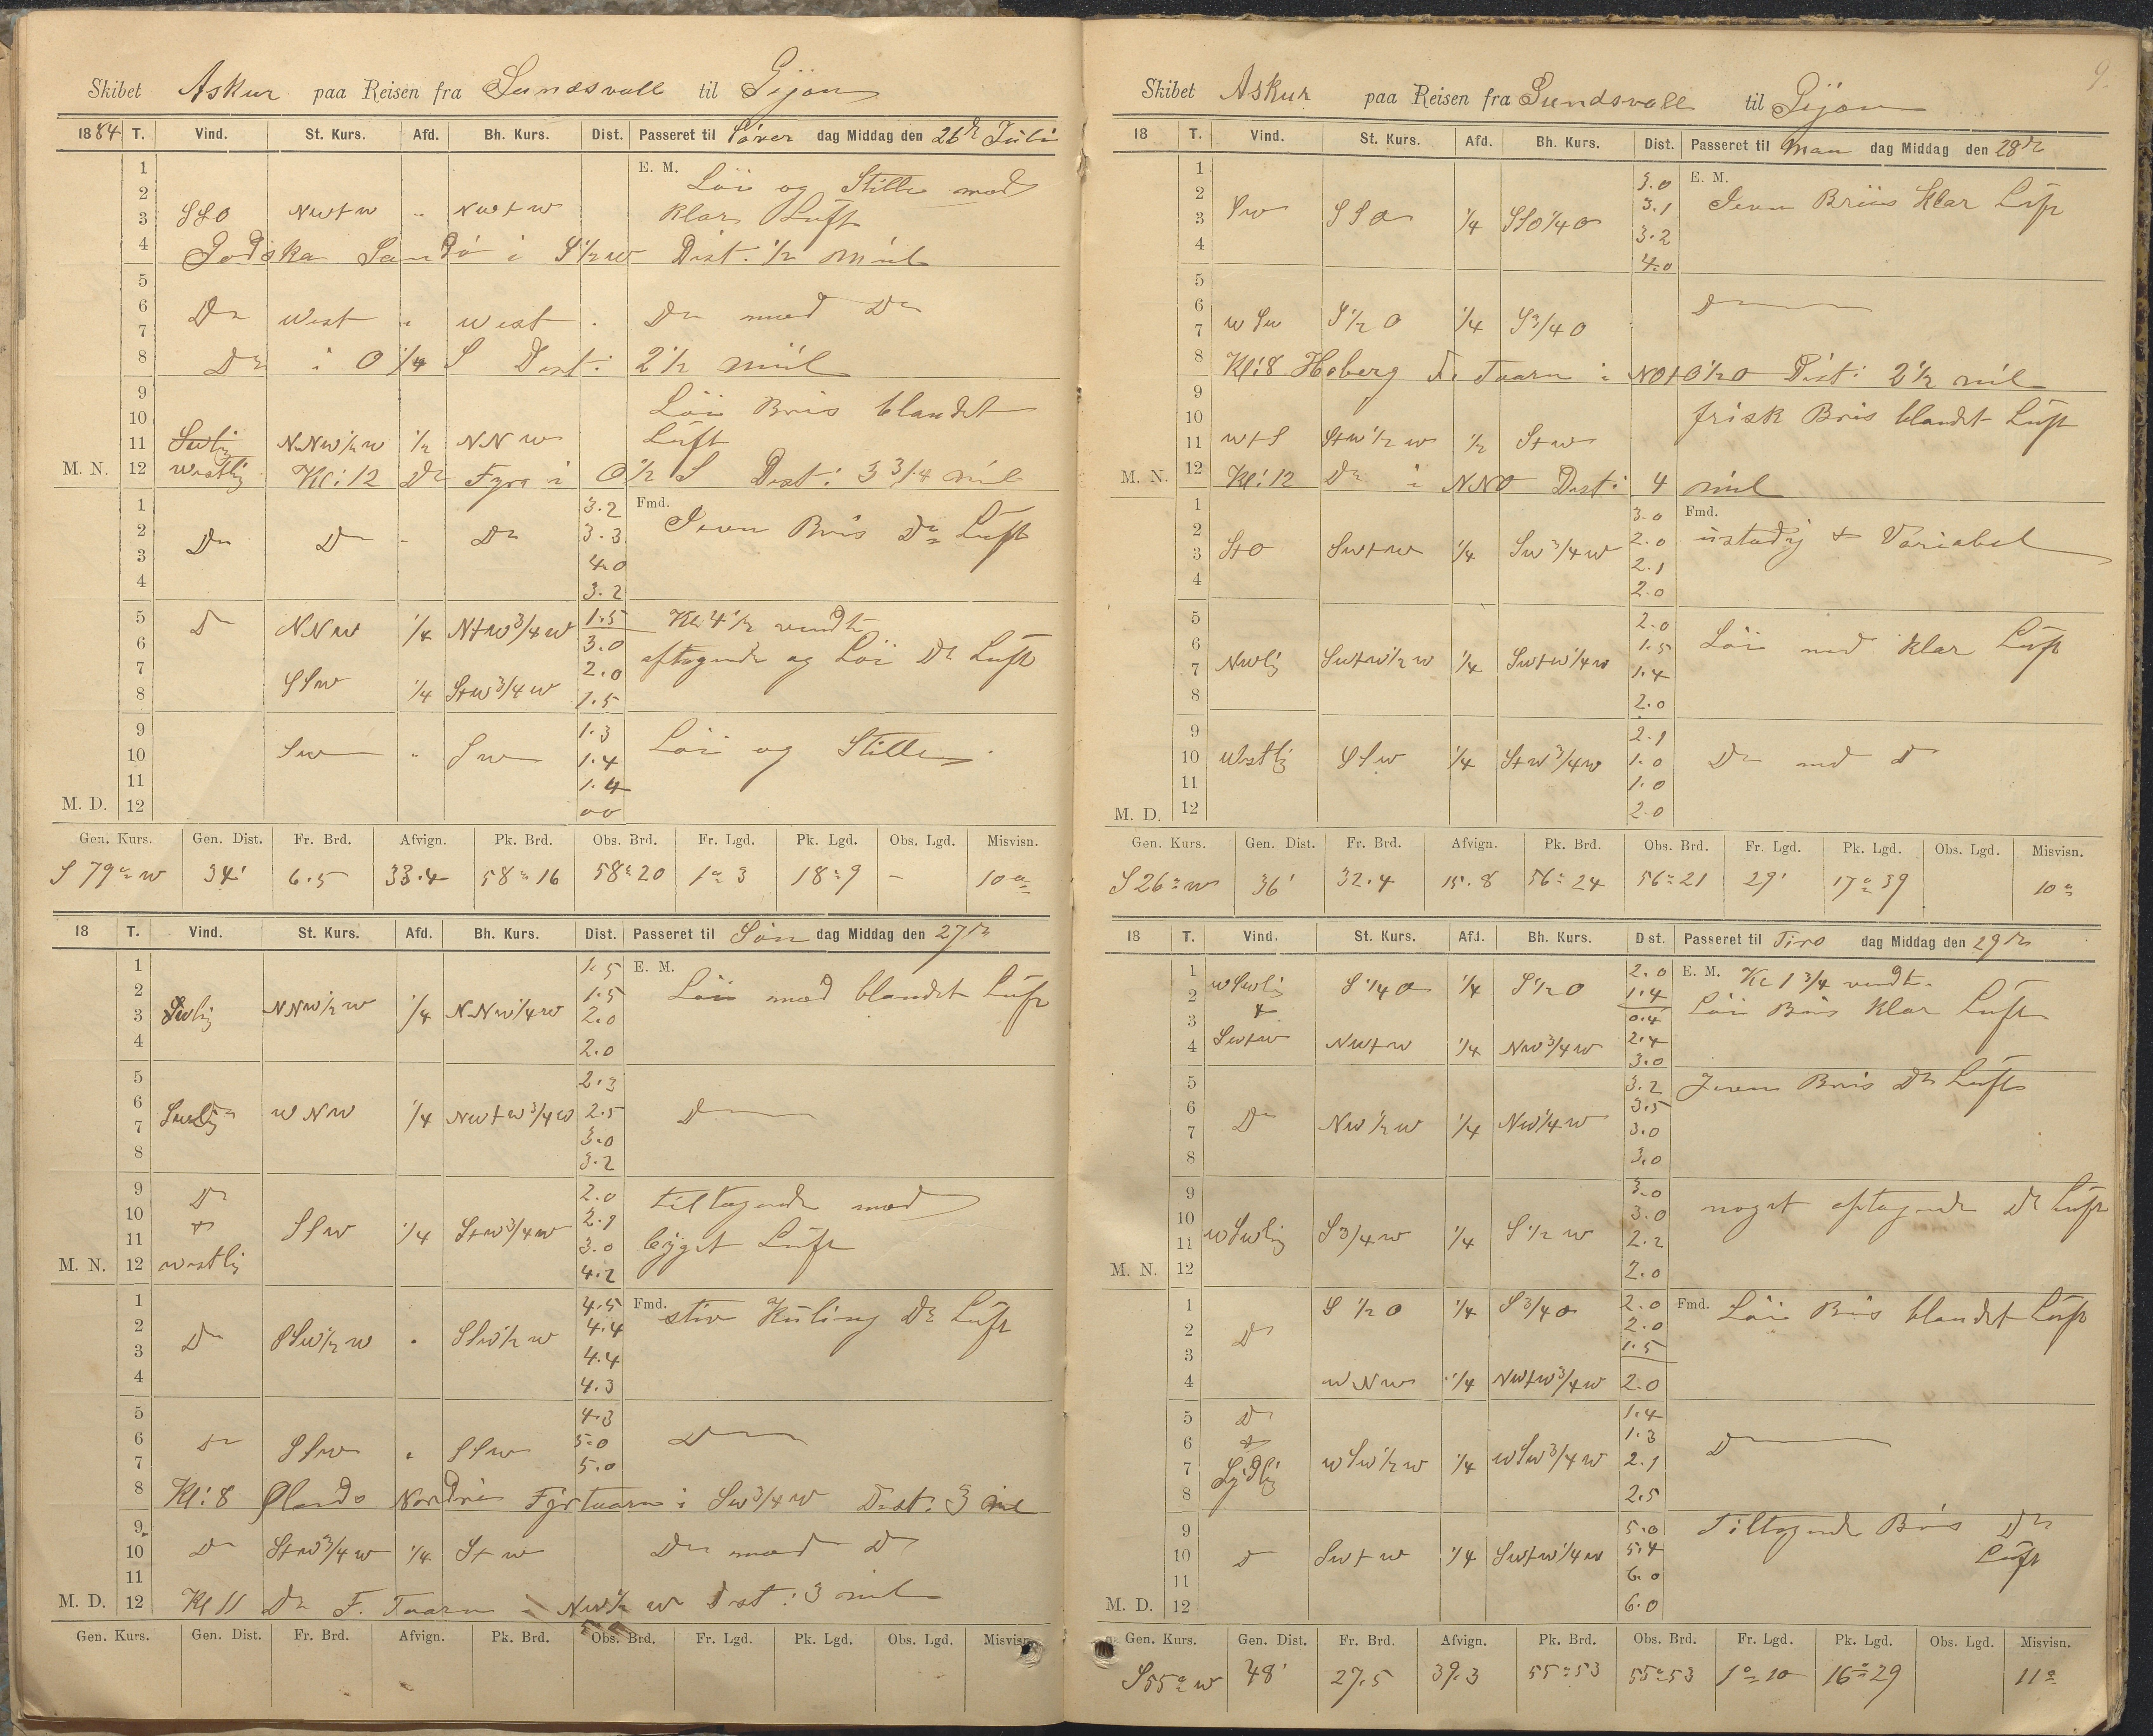 Skibet Askur paa Reisen fra Sundsvall til Gijon
1884 T. Vind. St. Kurs. Afd. Bh. Kurs. Dist. Passeret til Löver dag Middag den 26de Juli
1 E. M. Löi og Stille med
2
3 SSO NWtW " NWtW klar Luft
4 Godska Sandö i S 1/2 W Dist: 1/2 miil
5
6 Do West " West Do med Do
7
8 Do i O 1/4 S Dist: 2 1/2 miil
9 Löi Bris blandet
10 Luft
11 Swlig NNW 1/2 W 1/2 NNW
M. N. 12 Westlig Kl: 12 Do Fyra i O 1/2 S Dist: 3 3/4 miil
1 3.2 Fmd. Jevn Bris Do Luft
2 3.3
3 Do Do - Do 4.0
4 3.2
5 D NNW 1/4 NtW 3/4 W 1.5 Kl 4 1/2 vendt
6 3.0 aftagende og Löi Do Luft
7 2.0
8 SSW 1/4 StW 3/4 W 1.5
9 1.3
10 SW " SW 1.4 Löi og Stille
11 1.4
M. D. 12 00
Gen. Kurs. Gen. Dist. Fr. Brd. Afvign. Pk. Brd. Obs. Brd. Fr. Lgd. Pk. Lgd. Obs. Lgd. Misvisn.
S 79° W 34' 6.5 33.4 58° 16 58° 20 1° 3 18° 9 - 10°
18 T. Vind. St. Kurs. Afd. Bh. Kurs. Dist. Passeret til Søn dag Middag den 27de
1 1.5 E. M.
2 1.5 Löi med blandet Luft
3 Swlig NNW 1/2 W 1/4 NNW 1/4 W 2.0
4 2.0
5 2.3
6 WNW 1/4 NWtW 3/4 W 2.5 D
7 3.0
8 3.2
9 Do 2.0 tiltagende med
10 + SSW 1/4 StW 3/4 W 2.1
11 3.0 bÿget Luft
M. N. 12 Westlig 4.2
1 4.5 Fmd. stiv Kuling Do Luft
2 4.4
3 Do SSW 1/2 W " SSW 1/2 W 4.4
4 4.3
5 4.3
6 Do SSW " SSW 5.0 D
7 5.0
8 Kl: 8 Ølands Nordre Fÿrtaarn i SW 3/4 W Dist: 3 mil
9
10 Do StW 3/4 W 1/4 StW Do med D
11
M. D. 12 Kl 11 Do F. Taarn i NW 1/2 W Dist: 3 mil
Gen. Kurs. Gen. Dist. Fr. Brd. Afvign. Pk. Brd. Obs. Brd. Fr. Lgd. Pk. Lgd. Obs. Lgd. Misvisn.
9.
Skibet Askur paa Reisen fra Sundsvall til Gijon
18 T. Vind. St. Kurs. Afd. Bh. Kurs. Dist. Passeret til Man dag Middag den 28de
1 3.0 E. M.
2 3.1 Jevn Briis Klar Luft
3 SW SSO 1/4 SSO 1/4 O 3.2
4 4.0
5
6 D
7 WSW S 1/2 O 1/4 S 3/4 O
8 Kl: 8 Hoberg F. Taarn i NOtO 1/2 O Dist: 2 1/2 mil
9
10 frisk Bris blandet Luft
11 WtS StW 1/2 W 1/2 StW
M. N. 12 Kl: 12 Do i NNO Dist: 4 miil
1 3.0 Fmd.
2 2.0 ustadig & Variabel
3 StO SWtW 1/4 SW 3/4 W 2.1
4 2.0
5 2.0
6 1.5 Löi med klar Luft
7 NWlig SWtW 1/2 W 1/4 SWtW 1/4 W 1.4
8 2.0
9 2.1
10 Westlig SSW 1/4 StW 3/4 W 1.0 Do med D
11 1.0
M. D. 12 2.0
Gen. Kurs. Gen. Dist. Fr. Brd. Afvign. Pk. Brd. Obs. Brd. Fr. Lgd. Pk. Lgd. Obs. Lgd. Misvisn.
S 26° W 36' 32.4 15.8 56° 24 56° 21 29' 17° 39 10°
18 T. Vind. St. Kurs. Afd. Bh. Kurs. Dist. Passeret til Tirs dag Middag den 29de
1 WSWlig S 1/4 O 1/4 S 1/2 O 2.0 E. M. Kl 1 3/4 vendt.
2 + 1.4 Löi Bris Klar Luft
3 0.4
4 SWtW NWtW 1/4 NW 3/4 W 2.4
3.0
5 3.2 Jevn Bris Do Luft
6 Do NW 1/2 W 1/4 NW 1/4 W 3.5
7 3.0
8 3.0
9 3.0
10 3.0 noget aftagende Do Luft
11 WSWlig S 3/4 W 1/4 S 1/2 W 2.2
M. N. 12 2.0
1 S 1/2 O 1/4 S 3/4 O 2.0 Fmd. Löi Bris blandet Luft
2 D 2.0
3 1.5
4 WNW 1/4 NWtW 3/4 W 2.0
5 D 1.4
6 + 1.3 D
7 Sÿdlig WSW 1/2 W 1/4 WSW 3/4 W 2.1
8 2.5
9 5.0 Tiltagende Bris Do
10 D SWtW 1/4 SWtW 1/4 W 5.4 Luft
11 6.0
M. D. 12 6.0
Gen. Kurs. Gen. Dist. Fr. Brd. Afvign. Pk. Brd. Obs. Brd. Fr. Lgd. Pk. Lgd. Obs. Lgd. Misvisn.
S 55° W 48' 27.5 39.3 55° 53 55° 53 1° 10 16° 29 11°